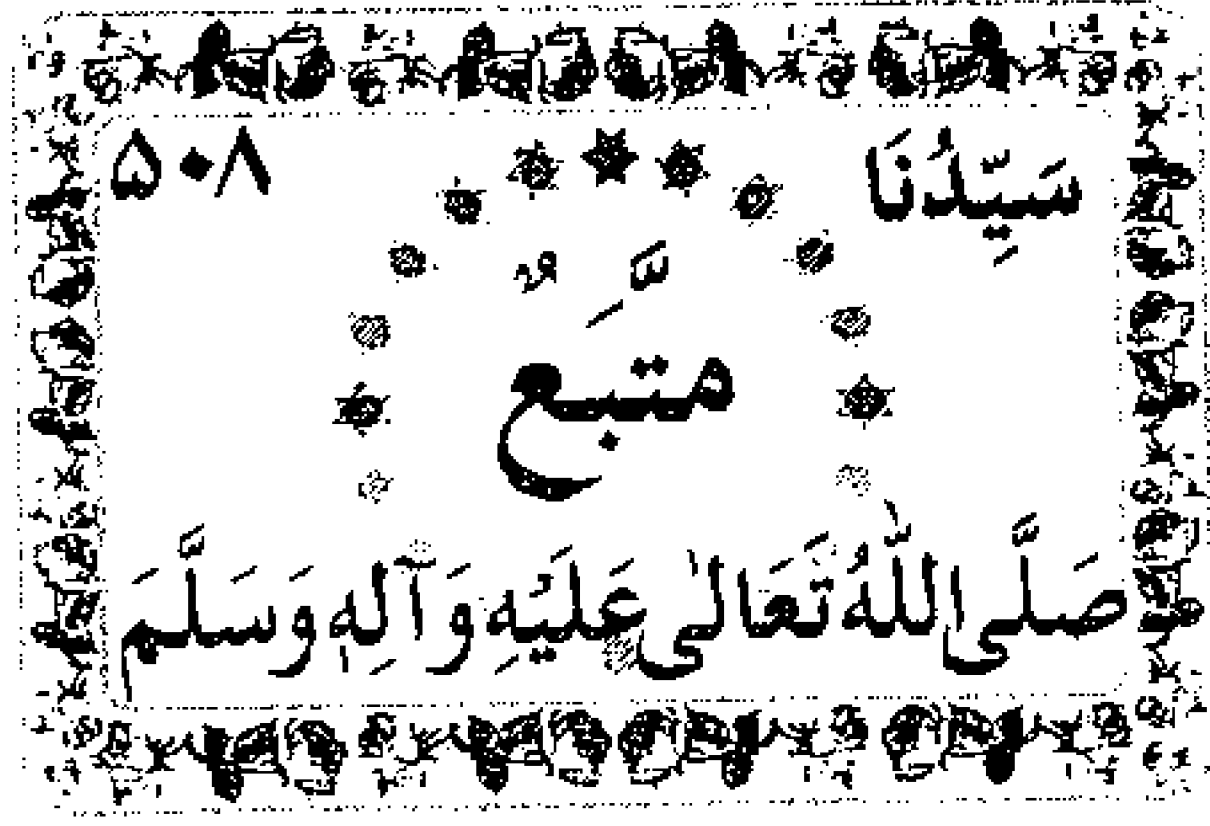 سَيِّدُنَا ۵۰۸
مُتَّبَعٌ
صَلَّى اللّٰهُ تَعَالىٰ عَلَيْهِ وَآلِهٖ وَسَلَّمَ